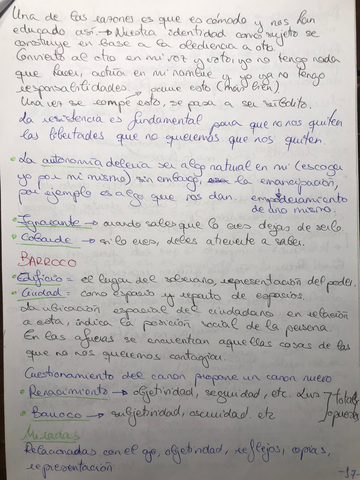 Una de las razones es que es cómodo y nos han
educado así → Nuestra identidad como sujeto se
construye en base a la obediencia a otro
Convierto al otro en mi voz y voto, yo no tengo nada
que hacer, actúa en mi nombre y yo ya no tengo
responsabilidades → pienso esto (muy bien)
Una vez se rompe esto, se pasa a ser súbdito.
La resistencia es fundamental para que no nos quiten
las libertades que no queremos que nos quiten.
• La autonomía debería ser algo natural en mí (escoger
yo por mí mismo) sin embargo, la emancipación,
por ejemplo es algo que nos dan. empoderamiento
de uno mismo.
• Ignorante → cuando sabes que lo eres dejas de serlo.
• Cobarde → si lo eres, debes atreverte a saber.
BARROCO
• Edificio = el lugar del soberano, representación del poder.
• Ciudad = como espacio y reparto de espacios.
La ubicación espacial del ciudadano en relación
a esta, indica la posición social de la persona.
En las afueras se encuentran aquellas cosas de las
que no nos queremos contagiar.
Cuestionamiento del canon propone un canon nuevo
• Renacimiento → objetividad, seguridad, etc. Luz
• Barroco → subjetividad, oscuridad. etc
Miradas
Relacionadas con el ojo, objetividad, reflejos, copias,
representación
-17-